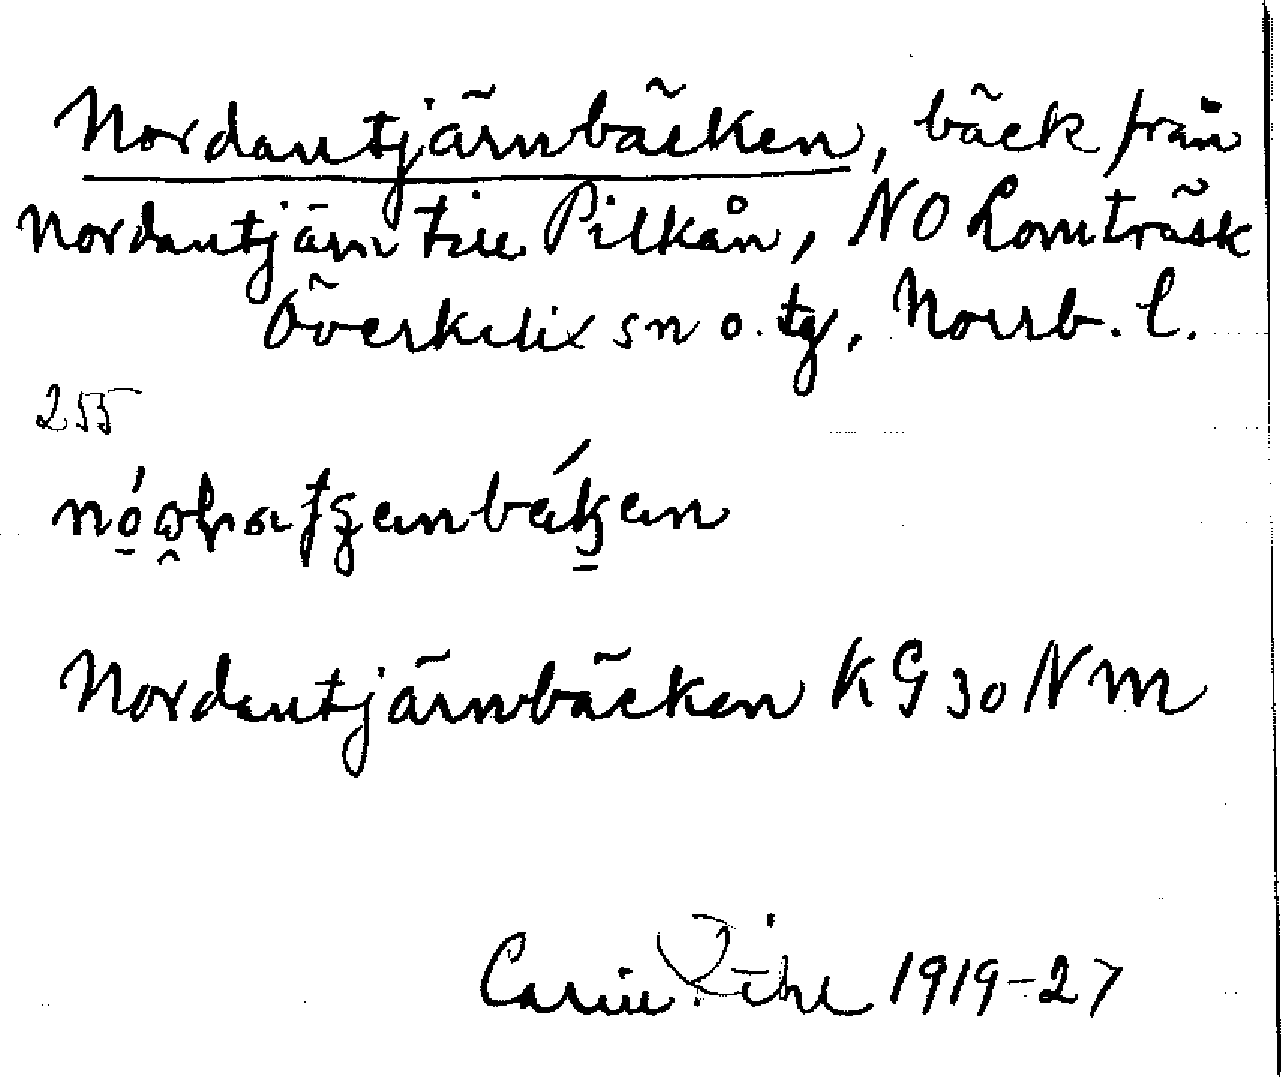 Nordantjärnbäcken, bäck från
Nordantjärn till Pilkån, NO Lomträsk
Överkalix sn o. tg, Norrb. l.
255
Nordantjärnbäcken KG 30 NM
Carin Pihl 1919-27